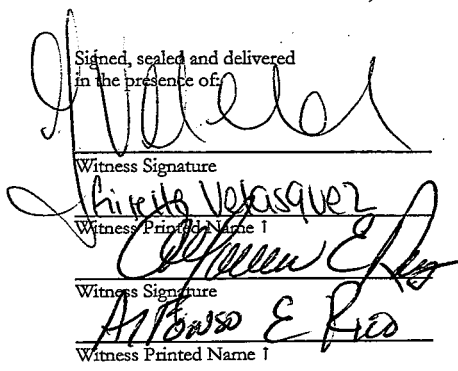 Signed, sealed and delivered
in the presence of:
Witness Signature
Velasquez
Witness Printed Name 1
Witness Signature
Alfonso E Rico
Witness Printed Name 1